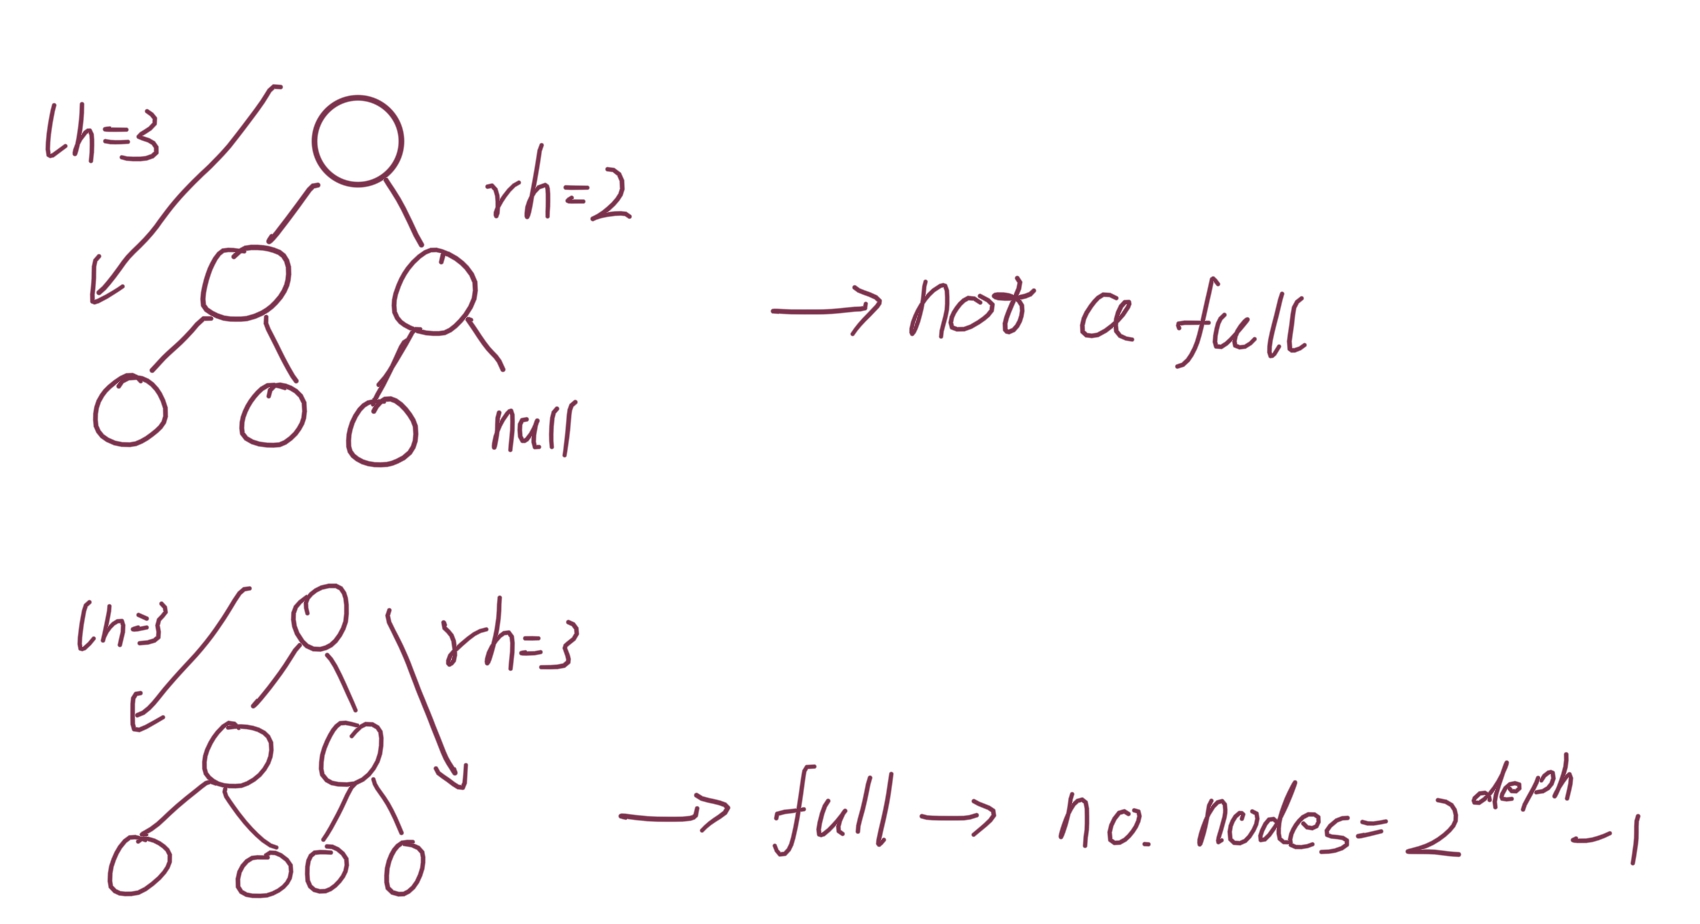 lh=3
rh=2
→ not a full
null
lh=3
rh=3
→ full → no. nodes= 2^deph -1